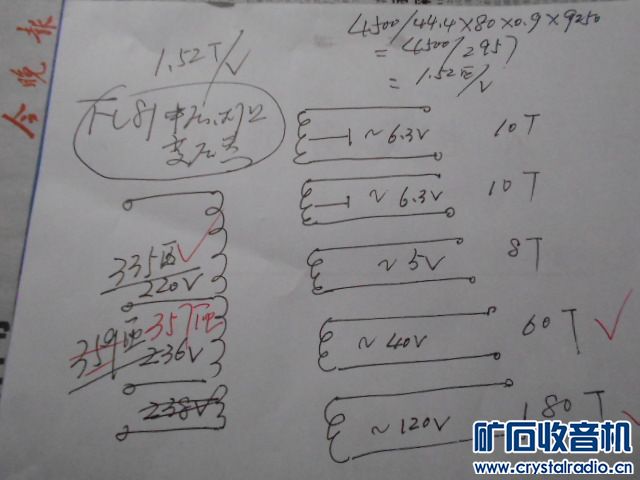 今晚报
4500/44.4×80×0.9×9250
= 4500/2957
= 1.52匝/V
1.52T/V
变压器
~6.3V 10T
~6.3V 10T
335匝
220V
~5V 8T
359匝 357匝
236V
~40V 60T
238V
~120V 180T
矿石收音机
www.crystalradio.cn